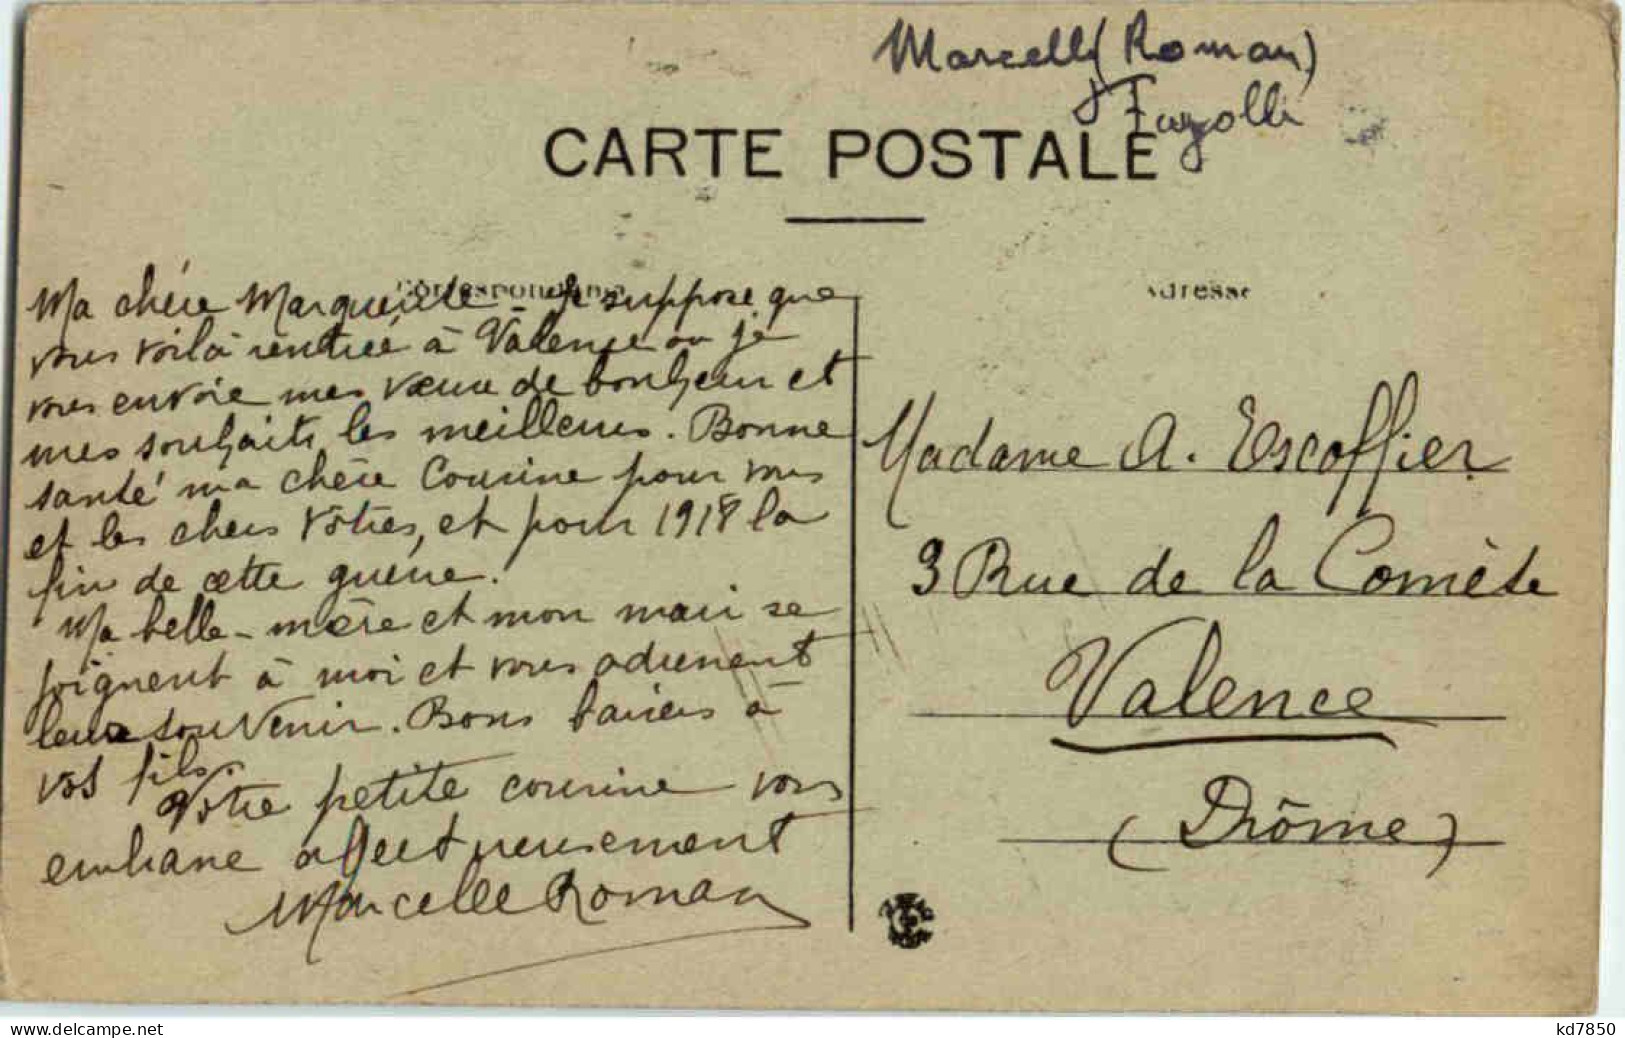 Marcelle (Roman)
Fayolle
CARTE POSTALE
Correspondance
Adresse
Ma chère Marguerite - Je suppose que
vous voilà rentrée à Valence ou je
vous envoie mes vœux de bonheur et
mes souhaits les meilleurs. Bonne
santé ma chère Cousine pour vous
et les chers vôtres, et pour 1918 la
fin de cette guerre.
Ma belle-mère et mon mari se
joignent à moi et vous adressent
leur souvenir. Bons baisers à
vos fils.
Votre petite cousine vous
embrasse affectueusement
Marcelle Roman
Madame A. Escoffier
3 Rue de la Comète
Valence
(Drôme)
delcampe.net
kd7850